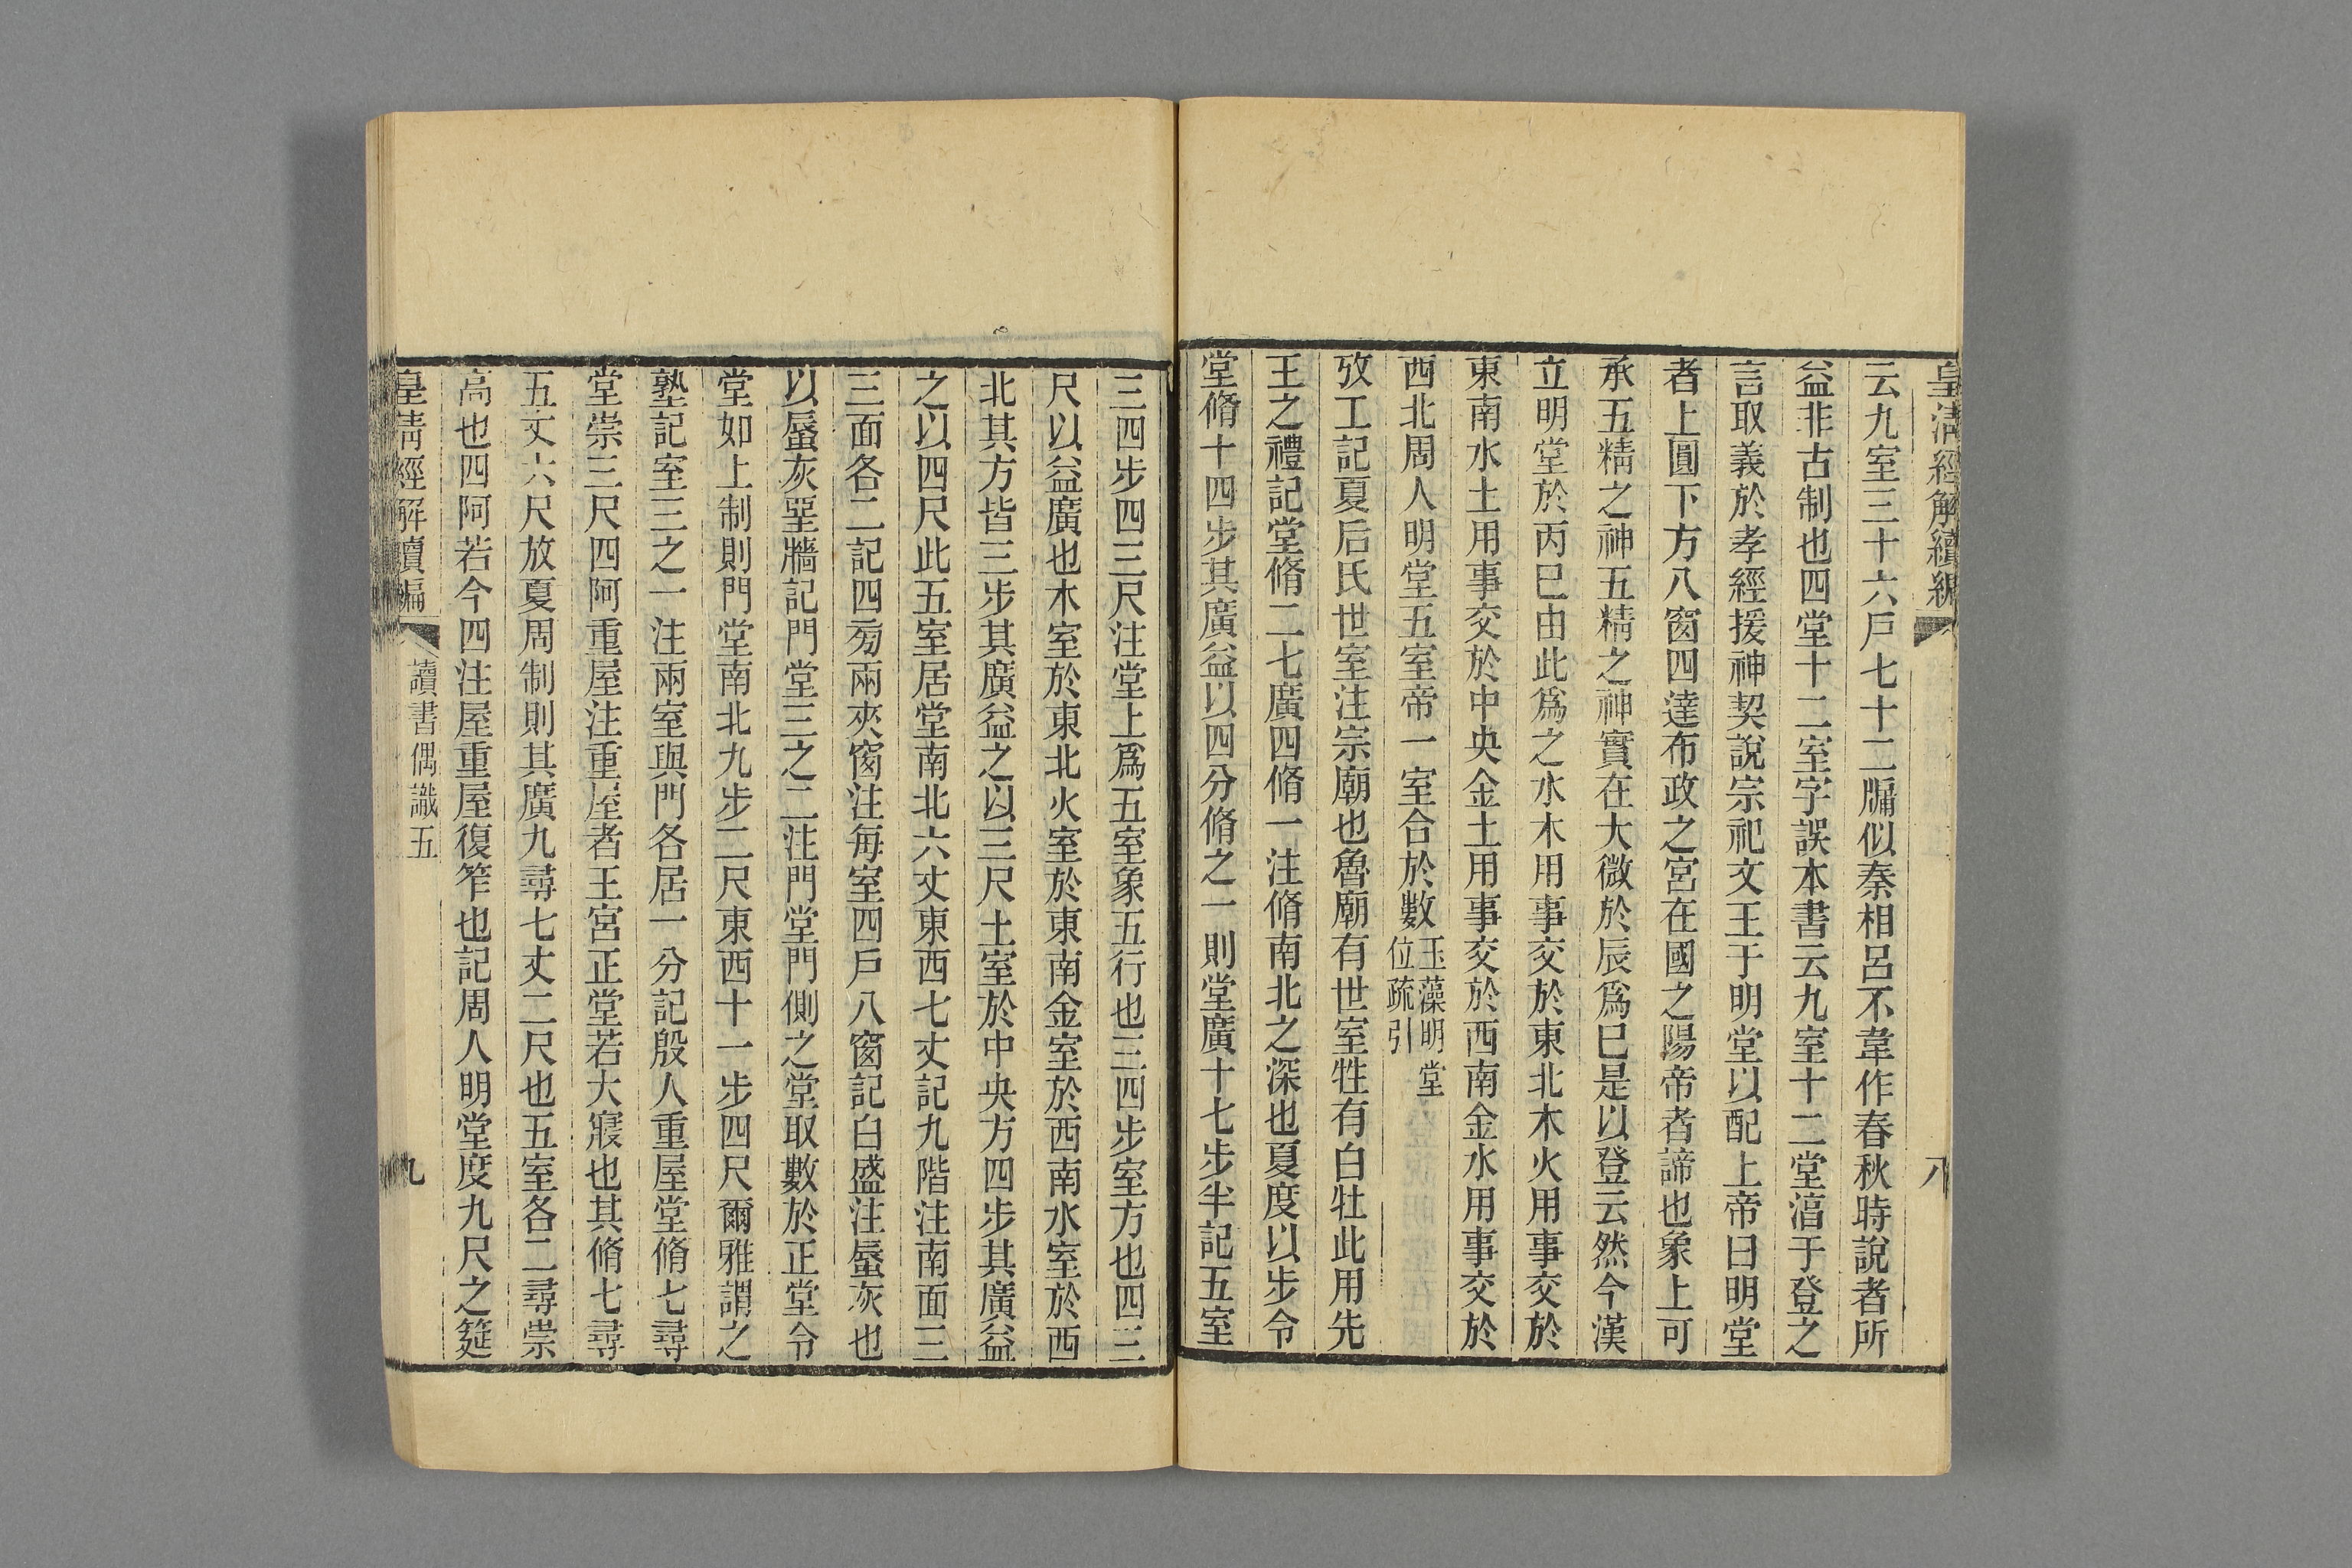 皇清經解續編
八
云九室三十六戶七十二牖似秦相呂不韋作春秋時說者所
益非古制也四堂十二室字誤本書云九室十二堂淯于登之
言取義於孝經援神契說宗祀文王于明堂以配上帝曰明堂
者上圓下方八窗四達布政之宮在國之陽帝者諦也象上可
承五精之神五精之神實在大微於辰爲巳是以登云然今漢
立明堂於丙巳由此爲之水木用事交於東北木火用事交於
東南火土用事交於中央金土用事交於西南金水用事交於
西北周人明堂五室帝一室合於數
玉藻明堂
位疏引
攷工記夏后氏世室注宗廟也魯廟有世室牲有白牡此用先
王之禮記堂脩二七廣四脩一注脩南北之深也夏度以步令
堂脩十四步其廣益以四分脩之一則堂廣十七步半記五室
三四步四三尺注堂上爲五室象五行也三四步室方也四三
尺以益廣也木室於東北火室於東南金室於西南水室於西
北其方皆三步其廣益之以三尺土室於中央方四步其廣益
之以四尺此五室居堂南北六丈東西七丈記九階注南面三
三面各二記四㫄兩夾窗注每室四戶八窗記白盛注蜃灰也
以蜃灰堊牆記門堂三之二注門堂門側之堂取數於正堂令
堂如上制則門堂南北九步二尺東西十一步四尺爾雅謂之
塾記室三之一注兩室與門各居一分記殷人重屋堂脩七尋
堂崇三尺四阿重屋注重屋者王宮正堂若大寢也其脩七尋
五丈六尺放夏周制則其廣九尋七丈二尺也五室各二尋崇
高也四阿若今四注屋重屋復笮也記周人明堂度九尺之筵
皇清經解續編
讀書偶識五
九